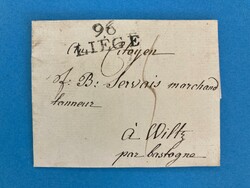 96
LIÉGE
Au Citoyen
J: B: Servais marchand
tanneur
à Wiltz
par bastogne